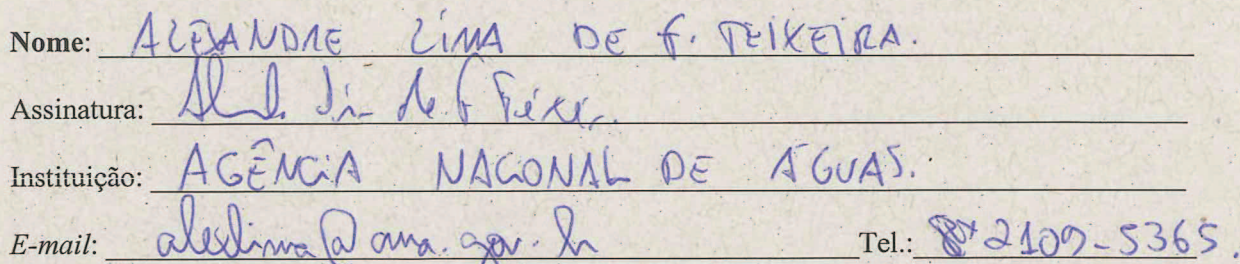 Nome: ALEXANDRE LIMA DE F. TEIXEIRA.
Assinatura:
Instituição: AGÊNCIA NACIONAL DE ÁGUAS.
E-mail: alexlima@ana.gov.br Tel.: 2109-5365.